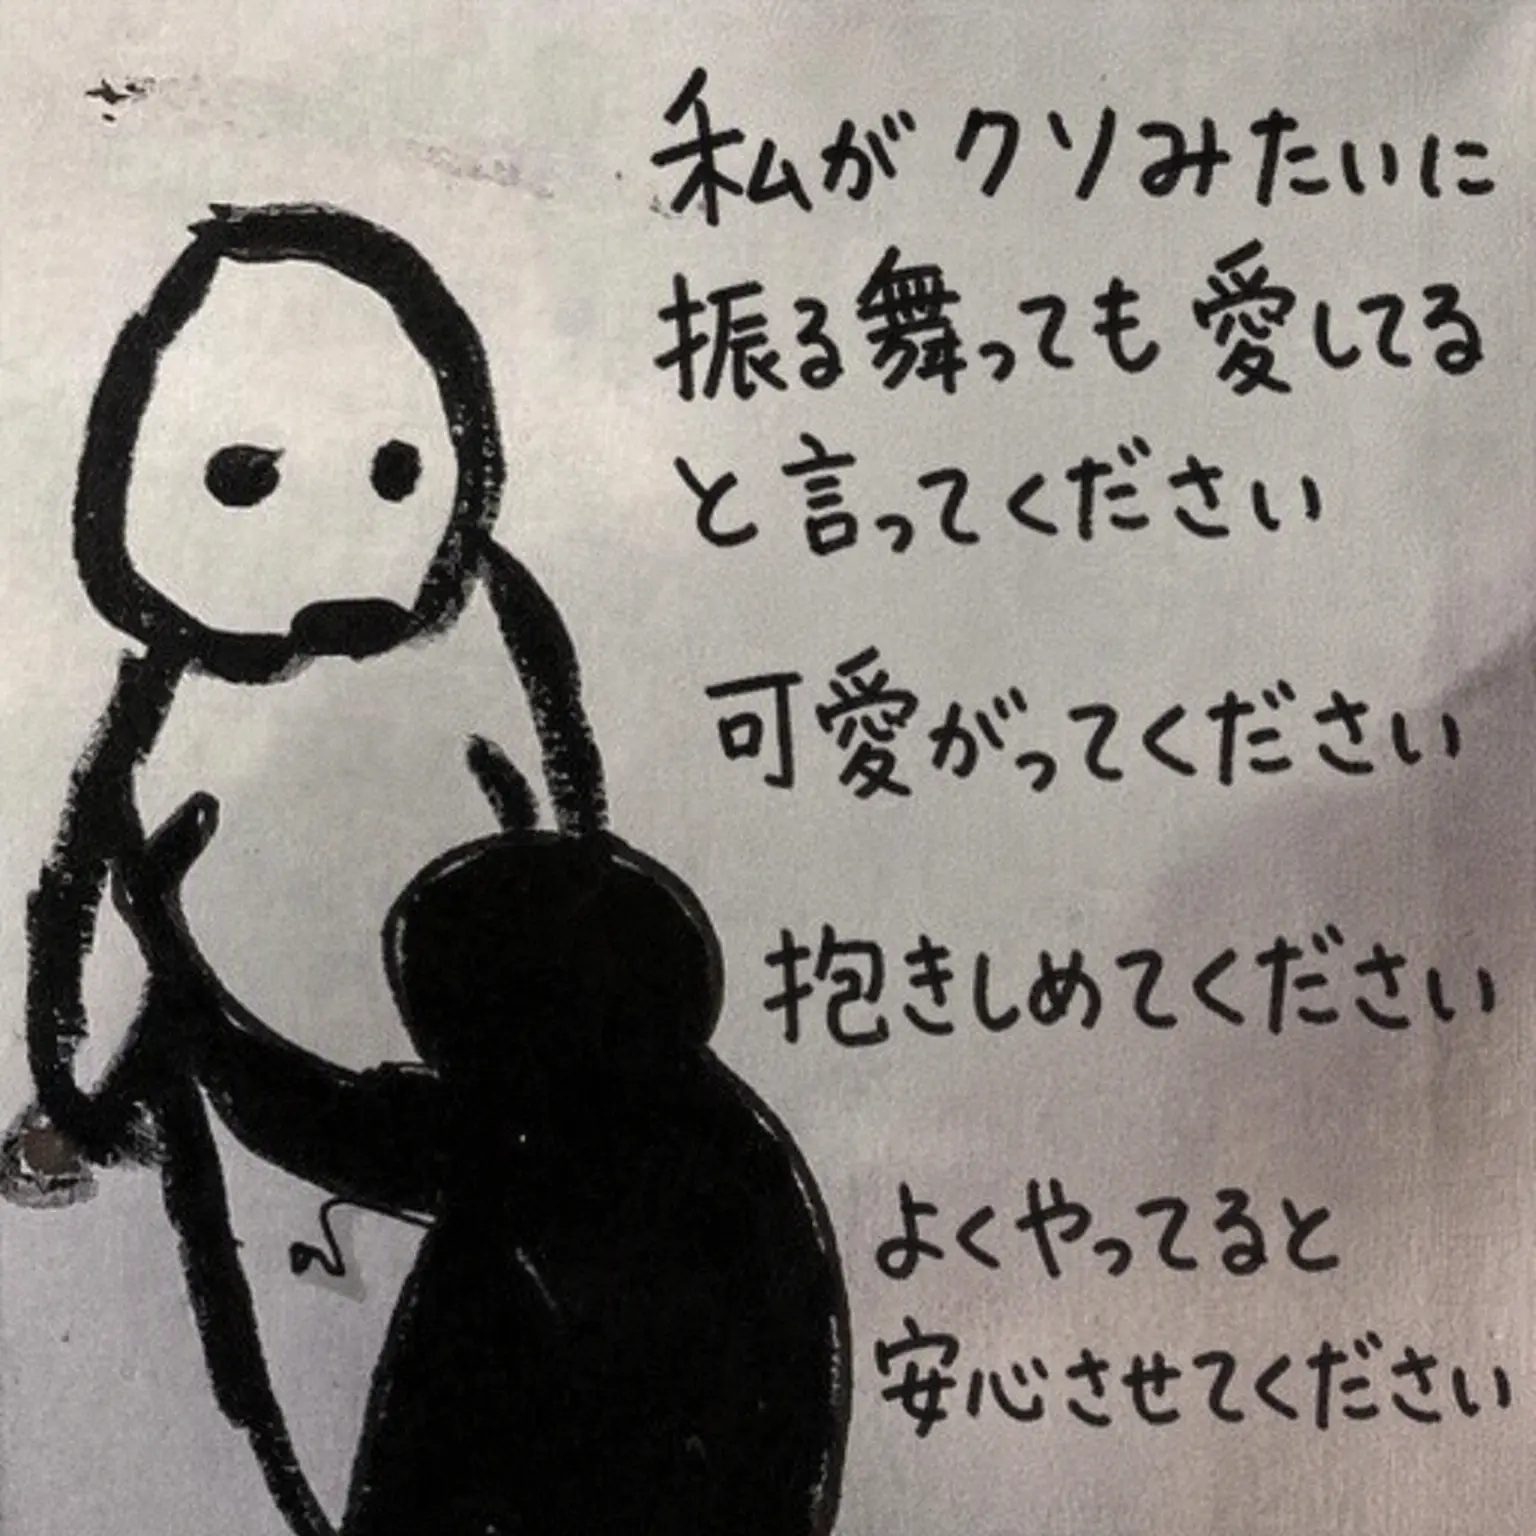 私がクソみたいに
振る舞っても愛してる
と言ってください
可愛がってください
抱きしめてください
よくやってると
安心させてください